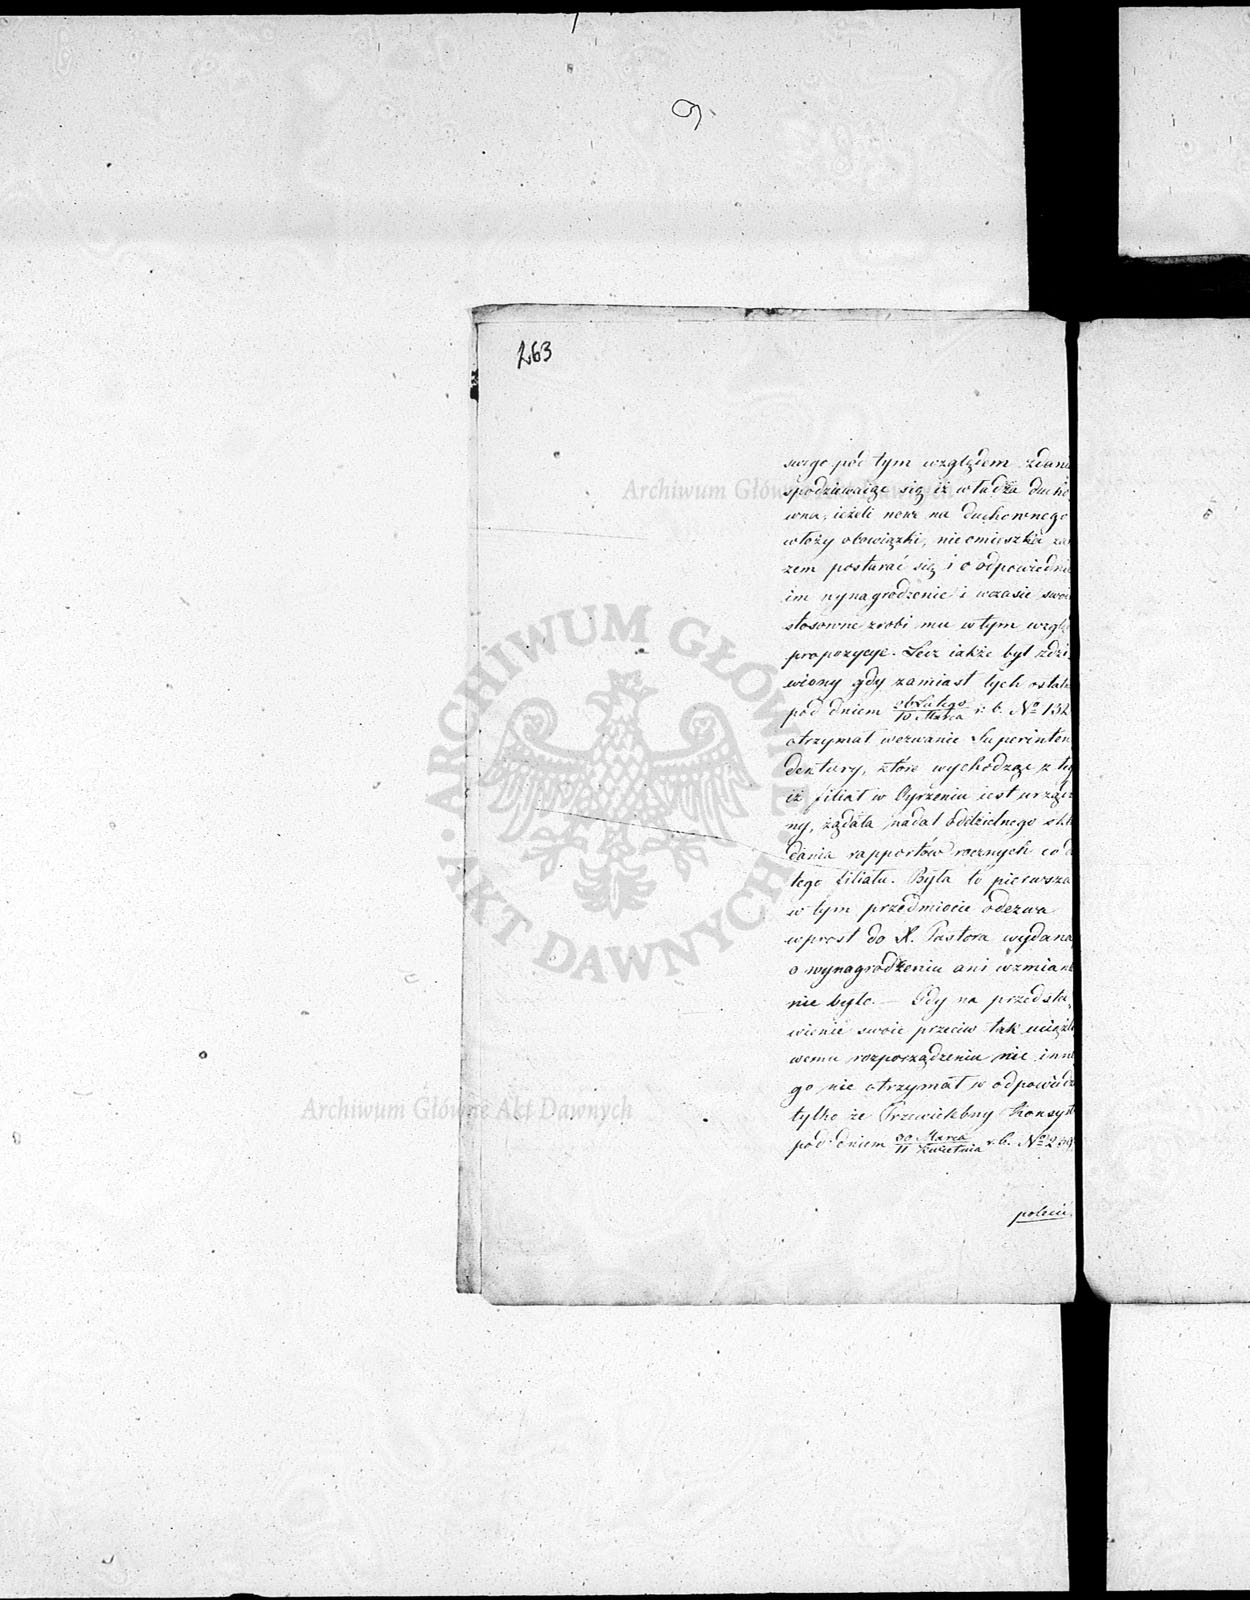 9
263
swego pod tym względem zdani
spodziewaiąc się iż władza ducho,
wna, ieżeli nowe na duchownego
włoży obowiązki, nieomieszka za
zem postarać się i o odpowiednie
im wynagrodzenie i wczasie swoi
stosowne zrobi mu w tym wzglę
propozycye. Lecz iakże był zdzi,
wiony gdy zamiast tych ostat
pod dniem 26 Lutego / 10 Marca r. b. No 132
otrzymał wezwanie Superinten
dentury, które wychodząc z te
iż filiał w iest urządzo
ny, żądała nadal oddzielnego skła
dania rapportów rocznych co d
tego filiału. Była to pierwsza
w tym przedmiocie odezwa
wprost do X. Pastora wydana,
o wynagrodzeniu ani wzmian
nie było. — Gdy na przedsta,
wienie swoie przeciw tak uciążli
wemu rozporządzeniu nic inne
go nie otrzymał w odpowiedz
tylko że Przewielebny Konsyst
pod dniem 30 Marca / 11 Kwietnia r. b. No
polecił,
Archiwum Główne Akt Dawnych
ARCHIWUM GŁÓWNE AKT DAWNYCH
Archiwum Główne Akt Dawnych